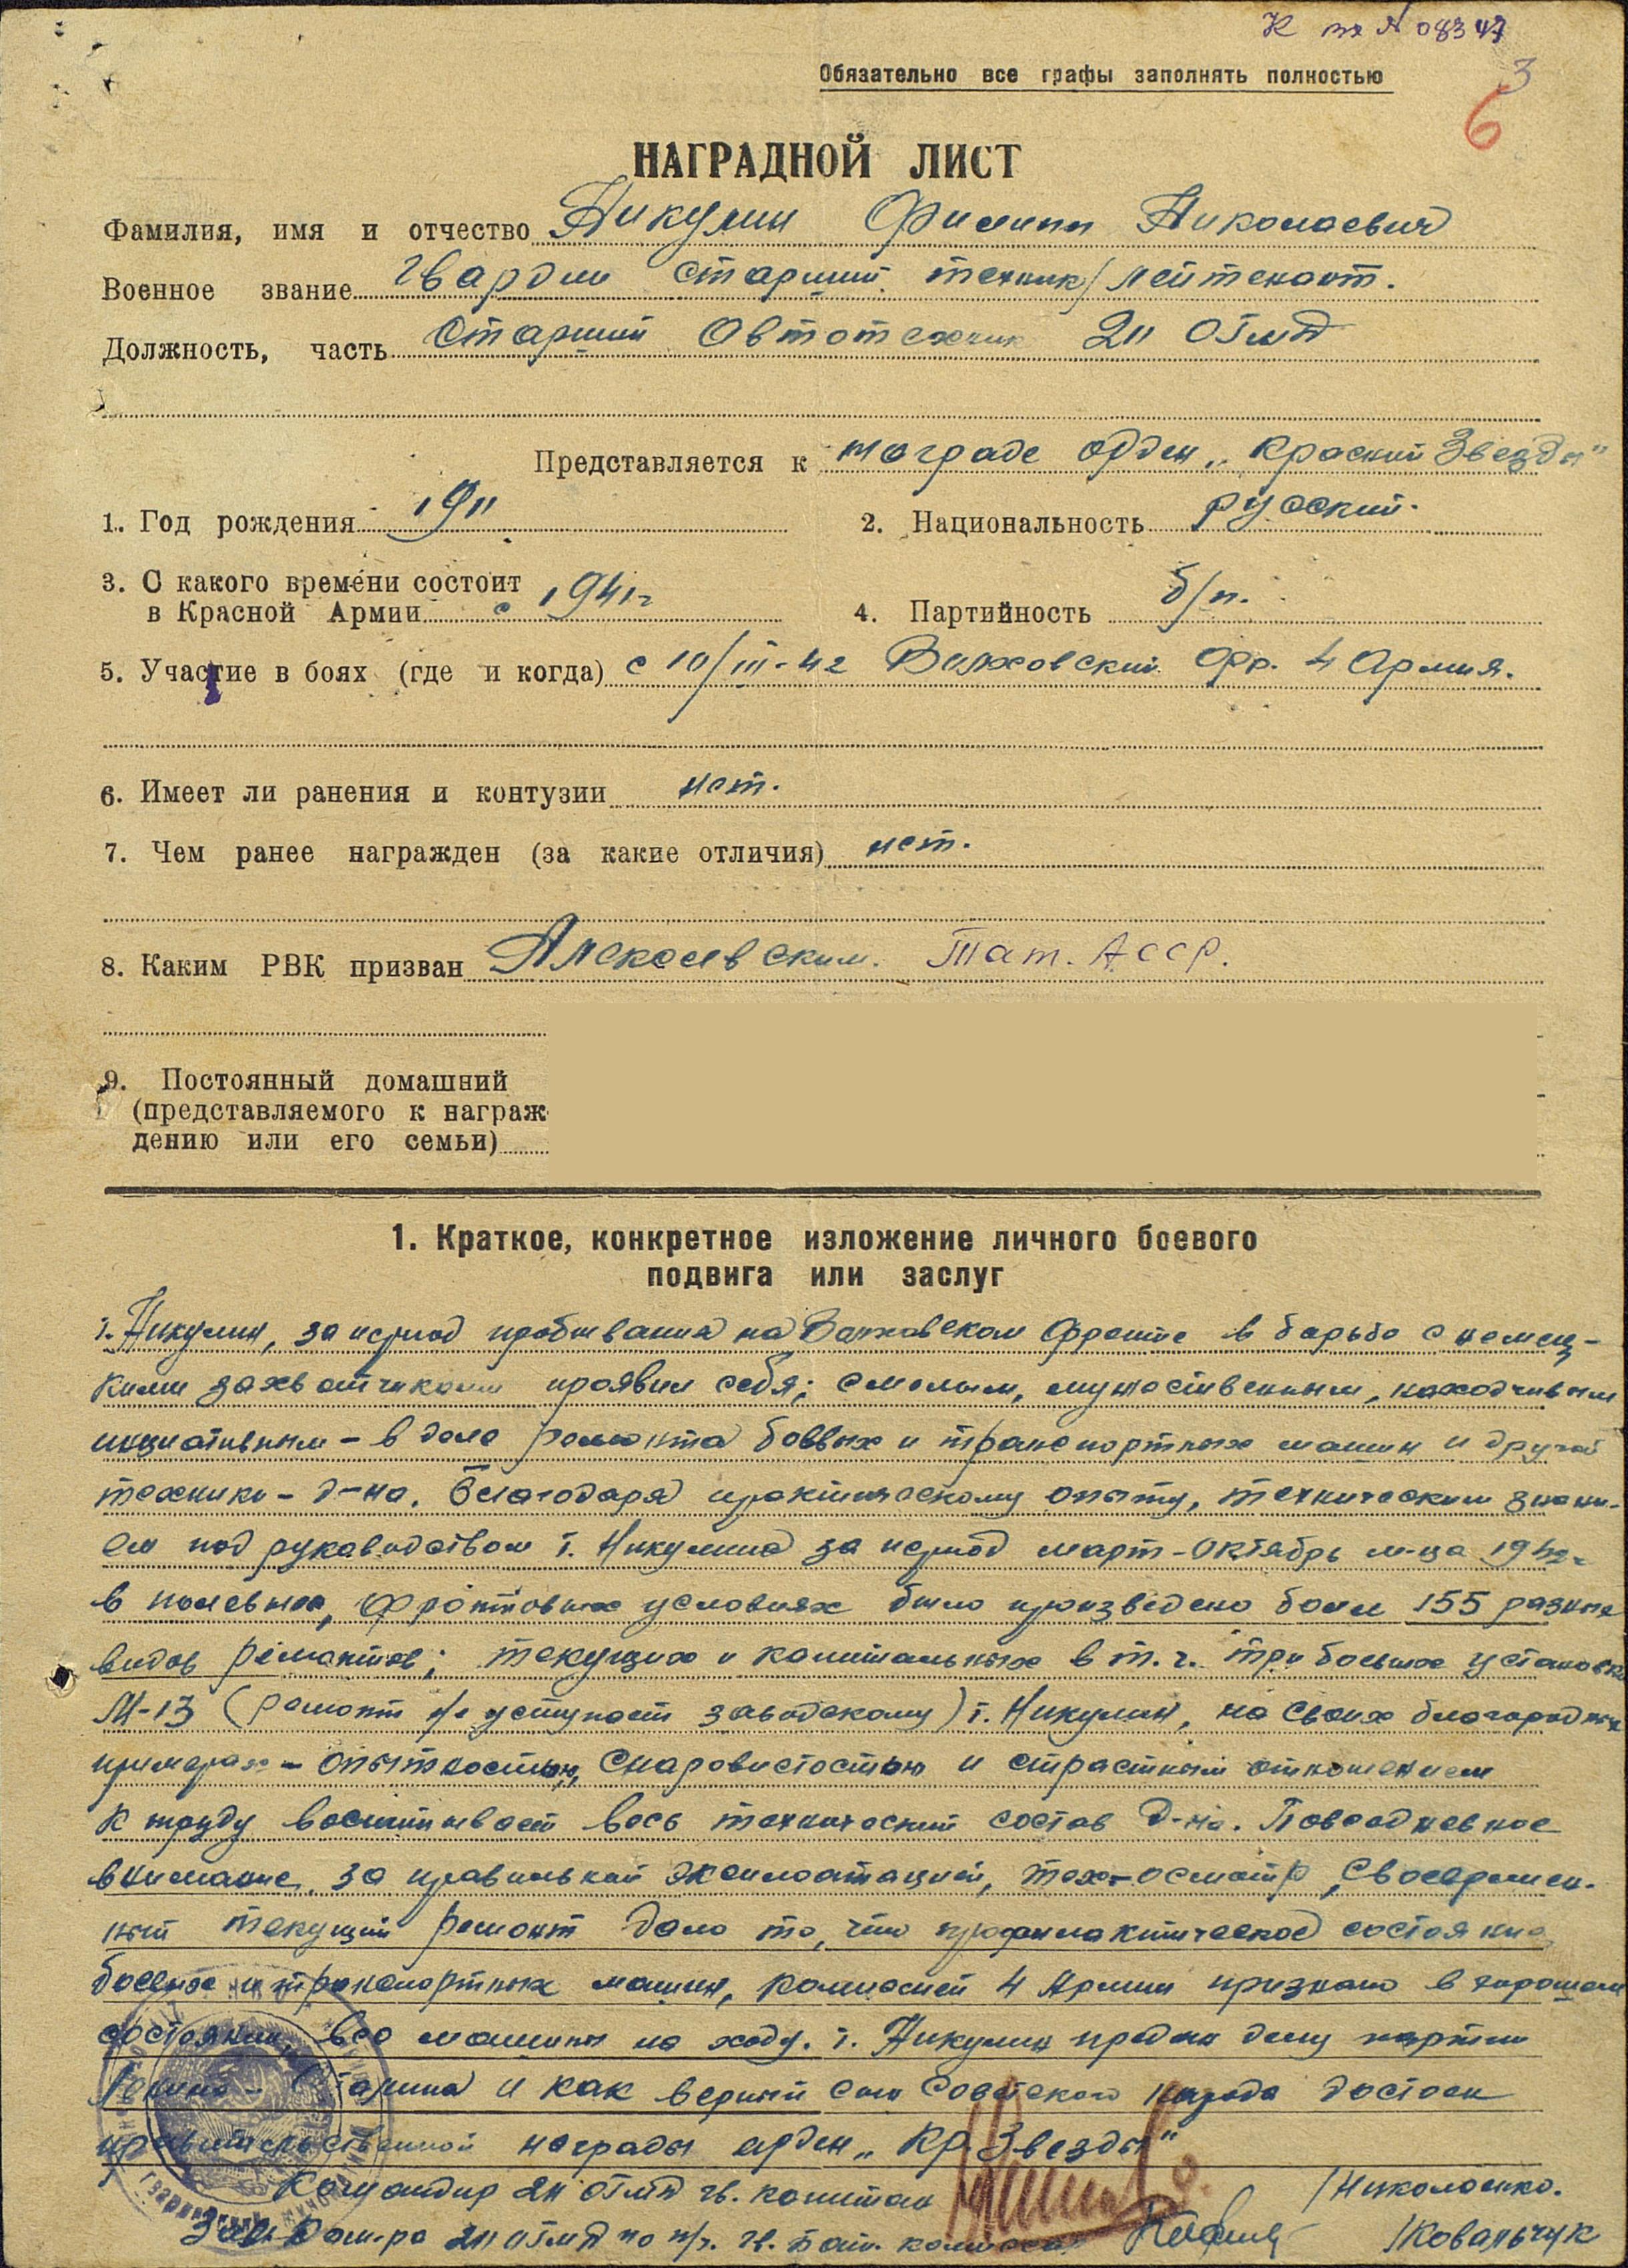 К вх № 08347
3
Обязательно все графы заполнять полностью
6
НАГРАДНОЙ ЛИСТ
Фамилия, имя и отчество Никулин Филипп Николаевич
Военное звание Гвардии старший техник/лейтенант.
Должность, часть Старший Автотехник 211 ОГМД
Представляется к награде орден „Красной Звезды"
1. Год рождения 1911 2. Национальность русский.
3. С какого времени состоит
в Красной Армии с 1941г 4. Партийность б/п.
5. Участие в боях (где и когда) с 10/III-42 Волховский фр. 4 Армия.
6. Имеет ли ранения и контузии нет.
7. Чем ранее награжден (за какие отличия) нет.
8. Каким РВК призван Алексеевским. Тат. АССР.
9. Постоянный домашний
(представляемого к награж-
дению или его семьи)
1. Краткое, конкретное изложение личного боевого
подвига или заслуг
т. Никулин, за период пребывания на Волховском фронте в борьбе с немец-
кими захватчиками проявил себя; смелым, мужественным, находчивым
инциативным – в деле ремонта боевых и транспортных машин и другой
технико – д-на. Благодаря практическому опыту, техническим знани-
ем под руководством т. Никулина за период март-октябрь м-ца 1942г
в полевых, фронтовых условиях было произведено более 155 разных
видов ремонтов; текущих и капитальных в т.ч. три боевых установки
М-13 (ремонт не уступает заводскому) т. Никулин, на своих благородных
примерах – опытностью, сноровистостью и страстным отношением
к труду воспитывает весь технический состав д-на. Повседневное
внимание за правильной эксплоатацией, тех-осмотр, своевремен-
ный текущий ремонт дало то, что профилактическое состояние
боевых и транспортных машин, комиссией 4 Армии признано в хорошем
состоянии, все машины на ходу. т. Никулин предан делу партии
Ленина – Сталина и как верный сын Советского народа достоин
правительственной награды орден „Кр. Звезды"
Командир 211 ОГМД гв. капитан /Николаенко.
Зам. Ком-ра 211 ОГМД по п/ч. гв. бат. комиссар /Ковальчук